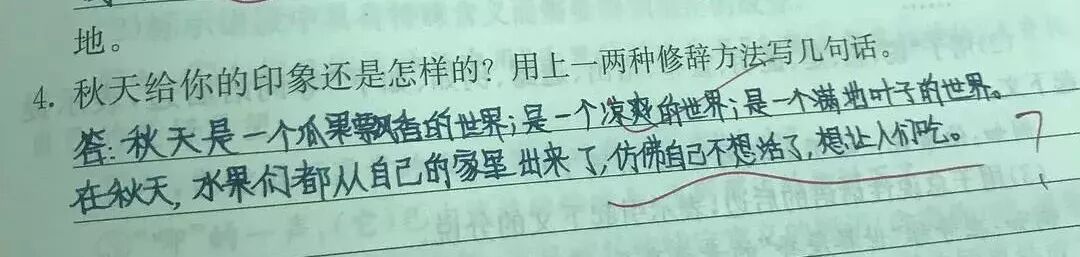 地。
4. 秋天给你的印象还是怎样的？用上一两种修辞方法写几句话。
答：秋天是一个瓜果飘香的世界；是一个凉爽的世界；是一个满地叶子的世界。
在秋天，水果们都从自己的家里出来了，仿佛自己不想活了，想让人们吃。